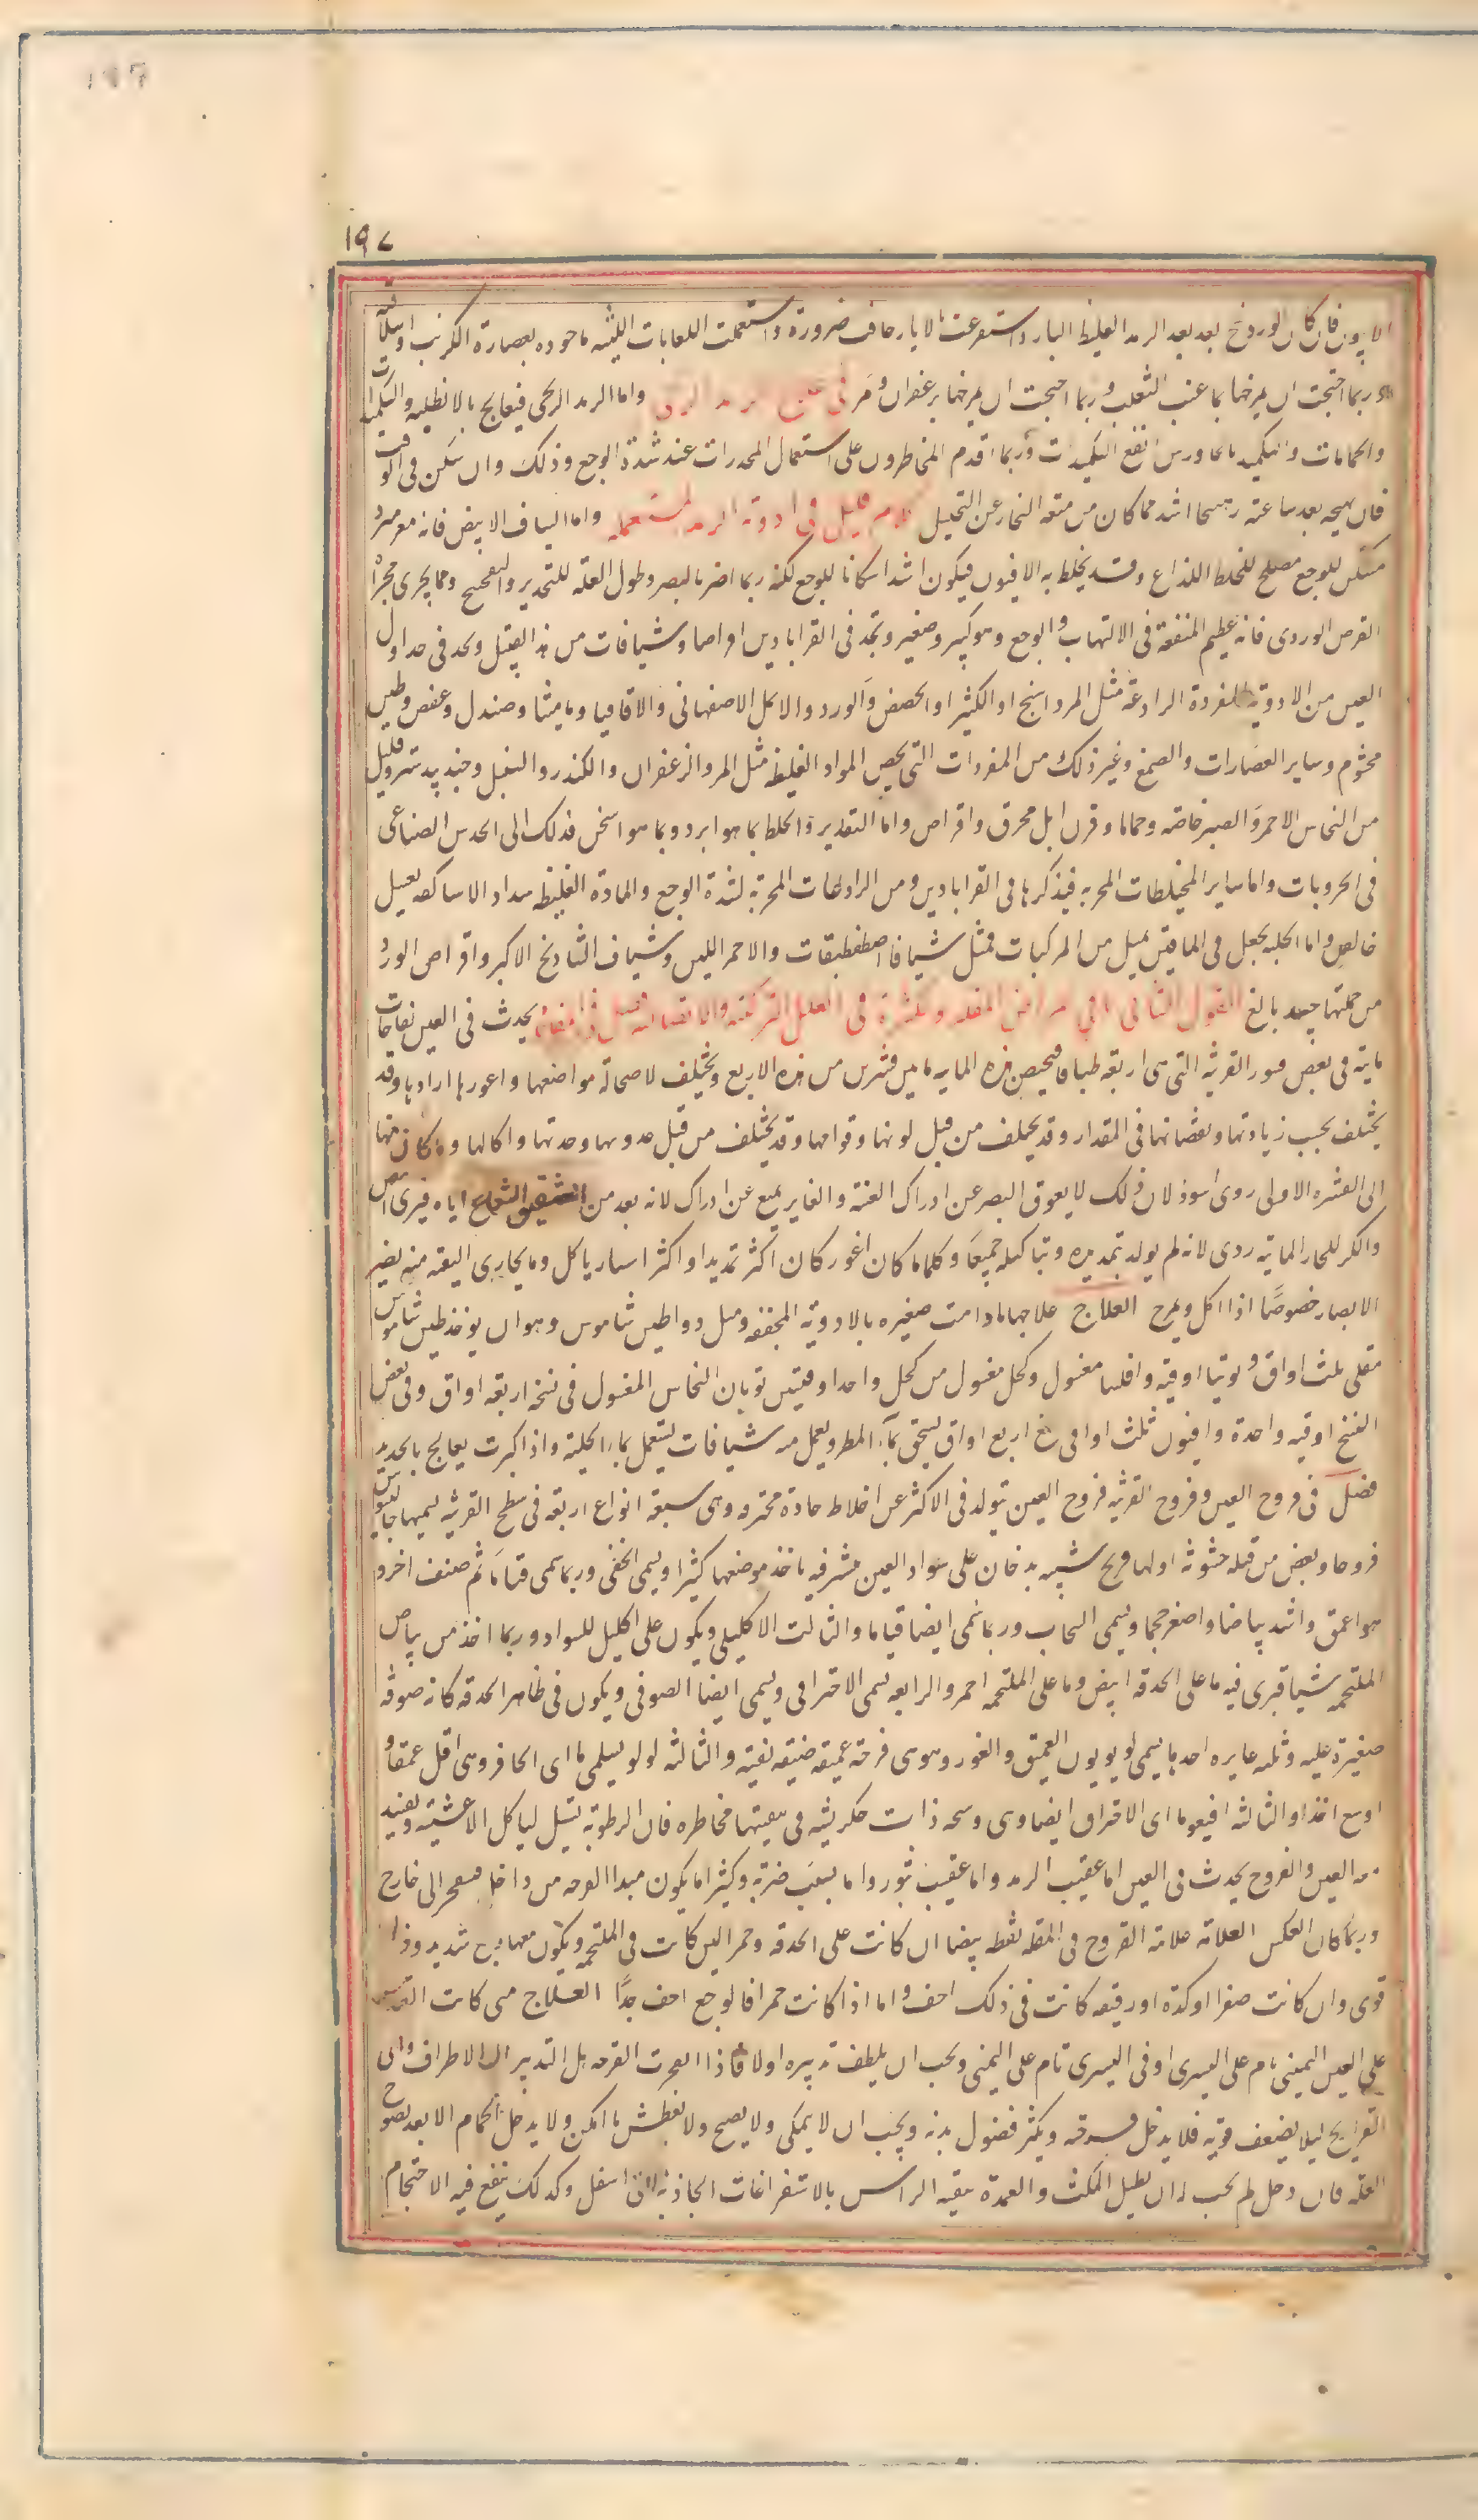 ١٩٧
الابيون فان كان الوردينج بعد بعد الرمد الغليظ البارد استفرغت بالايارجات ضرورة واستعملت اللعابات اللينه ماخوده بعصارة الكرنب او سلاقته
وربما احتجت ان يمزجها بما عنب الثعلب وربما احتجت ان يمزجها بزعفران ومر في علاج الرمد الريحى واما الرمد الريحى فيعالج بالاطليه والتكميدات
والحمامات والتكميد بالجاورس انفع التكميدات وربما اقدم المخاطرون على استعمال المخدرات عند شدة الوجع وذلك وان سكن فى الوقت
فان يهيجه بعد ساعته تهييجا اشد مما كان من منعه البخار عن التحليل كلام قليل فى ادوية الرمد المستعمله واما الشياف الابيض فانه مغر مبرد
مسكن للوجع مصلح للخلط اللذاع وقد يخلط به الافيون فيكون اشد اسكانا للوجع لكنه ربما اضر بالبصر وطول العلة للتخدير والتفجيج ومما يجرى مجراه
القرص الوردى فانه عظيم المنفعة فى الالتهاب والوجع وهو كبير وصغير وتجد فى القرابادين اقراصا وشيافات من هذا القبيل وتجد فى جداول
العين من الادوية المفردة الرادعة مثل المرداسنج او الكثيرا والحضض والورد والاكحل الاصفهانى والاقاقيا وماميثا وصندل وعفص وطين
مختوم وساير العصارات والصمغ وغير ذلك من المفردات التى يخص المواد الغليظه مثل المر والزعفران والكندر والسنبل وجندبيدستر وقليل
من النحاس الاحمر والصبر خاصه وحماما وقرن ايل محرق واقراص واما التقدير والخلط بما هو ابرد وبما هو اسخن فذلك الى الحدس الصناعى
فى الحروبات واما ساير المخيلطات المجربه فيذكرها فى القرابادين ومن الرادعات المجربة لشدة الوجع والمادة الغليظه مداد الاساكفه بعسل
خالص واما الحلبه يجعل فى الماقين بميل من المركبات فمثل شيافا اصطفطيقات والاحمر اللين وشياف الشادنج الاكبر واقراص الورد
من جملتها جيد بالغ القول الثانى فى امراض المقله واكثره فى العلل التركيبيه والاتصاليه فصل فى النفاخات يحدث فى العين نفاخات
مايه فى بعض قسور القرنيه التى هى اربعه طبقات فيحصن هذه المايه مابين قشرين من هذه الاربع ويختلف لامحالة مواضعها واغورها اراداها وقد
يختلف بحسب زيادتها ونقصانها فى المقدار وقد يختلف من قبل لونها وقوامها وقد يختلف من قبل عدوبها وحدتها واكالها وما كان منها
الى القشره الاولى روى اسود لان ذلك لا يعوق البصر عن ادراك العنبة والغاير يمنع عن ادراك لانه بعد من تشفيق الشعاع اياه فيرى ابيض
والكثر للحار المايه ردى لانه لم يولد تمديده وتباكله جميعا وكلما ما كان اغور كان اكثر تمديدا واكثر انتشار ياكل وما يحاذى الثقبه منه يضر
الابصار خصوصًا اذا اكل وقرح العلاج علاجها مادامت صغيره بالادويه المجففه ومثل دوا طين شاموس وهو ان يوخذ طين شاموس
مقلى ثلث اواق وتوتيا اوقيه واقليميا مغسول وكحل مغسول من كل واحد اوقيتين توبان النحاس المغسول فى نسخه اربعه اواق وفى بعض
النسخ اوقيه واحدة وافيون ثلث اواقى اربع اواق يسحق بماء المطر ويعمل منه شيافات يستعمل بماء الحلبة واذا كبرت يعالج بالحديد
فصل فى قروح العين وقروح القرنيه قروح العين تتولد فى الاكثر عن اخلاط حادة محترقه وهى سبعة انواع اربعه فى سطح القرنيه يسميها جالينوس
قروحا وبعض من قبله خشونه اولها قرح شبيه بدخان على سواد العين منتشر فيه ياخذ موضعها كثيرا ويسمى الخفى وربما سمى قتاما ثم صنف اخر و
هو اعمق واشد بياضا واصغر حجما ويسمى السحاب وربما سمى ايضا قتاما والثالث الاكليلى ويكون على اكليل السواد وربما اخذ من بياض
الملتحمه شيا فيرى فيه ما على الحدقه ابيض وما على الملتحمه احمر والرابعه يسمى الاحتراقى ويسمى ايضا الصوفى ويكون فى ظاهر الحدقه كانه صوفه
صغيرة عليه وثلثه غايره احدها يسمى لوبويون العميق والغور وهو وهى قرحة عميقه ضيقه نقيه والثالثه لولوبيلمى ما اى الحافر وهى اقل عمقا و
اوسع اخذا والثالثه افيقوما اى الاحتراق ايضا وهى وسخه ذات خشكريشه فى تنقيتها مخاطره فان الرطوبة تسيل لياكل الاغشية ويفسد
معه العين والقروح يحدث فى العين اما عقيب الرمد واما عقيب بثور واما بسبب ضربة وكثيرا ما يكون مبدا القرحه من داخل فينفجر الى خارج
وربما كان العكس العلامة علامة القروح فى المقله نقطه بيضا ان كانت على الحدقه وحمرا ان كانت فى الملتحمه ويكون معها وجع شديد
قوى وان كانت صفرا او كدة او رقيقه كانت فى ذلك اخف واما اذا كانت حمرا فالوجع اخف جدًا العلاج متى كانت القرحه
على العين اليمنى نام على اليسرى او فى اليسرى نام على اليمنى ويجب ان يلطف تدبيره اولا فاذا انفجرت القرحه بل التدبير الى الاطراف والى
الفراريج ليلا يضعف قوته فلا يدخل قرحته ويكثر فضول بدنه ويجب ان لا يمكى ولا يصيح ولا يعطش ما امكن ولا يدخل الحمام الا بعد نضوح
العله فان دخل لم يجب ان يطيل المكث والعمدة تنقيه الراس بالاستفراغات الجاذبة الى اسفل وكذلك ينفع فيه الاحتجام